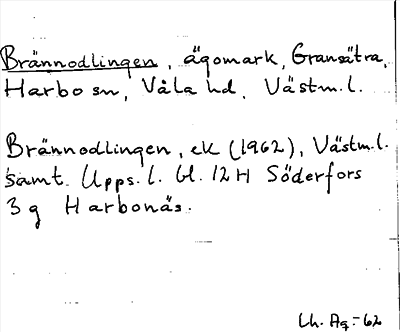 Brännodlingen, ägomark, Gransätra,
Harbo sn, Våla hd, Västm.l.
Brännodlingen, ek (1962), Västm.l.
samt. Upps.l. bl. 12H Söderfors
3 g Harbonäs.
Lh. Ag. -62